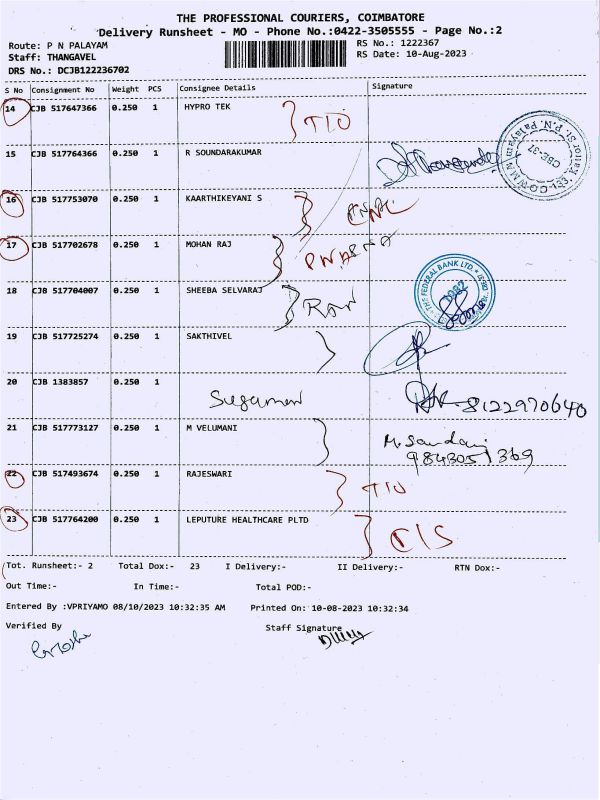 THE PROFESSIONAL COURIERS, COIMBATORE
Delivery Runsheet - MO - Phone No.:0422-3505555 - Page No.:2
Route: P N PALAYAM
RS No.: 1222367
Staff: THANGAVEL
RS Date: 10-Aug-2023
DRS No.: DCJB122236702
S No Consignment No Weight PCS Consignee Details Signature
14 CJB 517647366 0.250 1 HYPRO TEK
TIO
15 CJB 517764366 0.250 1 R SOUNDARAKUMAR
16 CJB 517753070 0.250 1 KAARTHIKEYANI S
17 CJB 517702678 0.250 1 MOHAN RAJ
18 CJB 517704007 0.250 1 SHEEBA SELVARAJ
THE FEDERAL BANK LTD.
19 CJB 517725274 0.250 1 SAKTHIVEL
20 CJB 1383857 0.250 1
8122970640
21 CJB 517773127 0.250 1 M VELUMANI
22 CJB 517493674 0.250 1 RAJESWARI
TIO
23 CJB 517764200 0.250 1 LEPUTURE HEALTHCARE PLTD
C/S
Tot. Runsheet:- 2 Total Dox:- 23 I Delivery:- II Delivery:- RTN Dox:-
Out Time:- In Time:- Total POD:-
Entered By :VPRIYAMO 08/10/2023 10:32:35 AM Printed On: 10-08-2023 10:32:34
Verified By Staff Signature